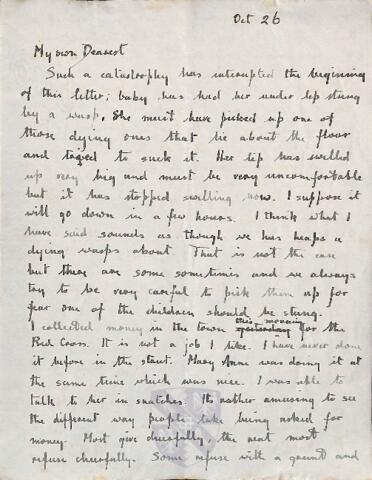 Oct 26
My own Dearest
Such a catastrophy has interrupted the beginning
of this letter; baby has had her under lip stung
by a wasp. She must have picked up one of
those dying ones that lie about the floor
and tried to suck it. Her lip has swelled
up very big and must be very uncomfortable
but it has stopped swelling now. I suppose it
will go down in a few hours. I think what I
have said sounds as though we has heaps of
dying wasps about. That is not the case
but there are some sometimes and we always
try to be very careful to pick them up for
fear one of the children should be stung.
I collected money in the town yesterday this morning for the
Red Cross. It is not a job I like. I have never done
it before in the street. Mary Anne was doing it at
the same time which was nice. I was able to
talk to her in snatches. It's rather amusing to see
the different way people take being asked for
money. Most give cheerfully, the next most
refuse cheerfully. Some refuse with a grunt and